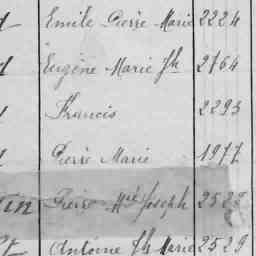 Emile Pierre Marie 2224
Eugène Marie Jh 2764
Francis 2293
Pierre Marie 1977
Pierre Mie Joseph 2528
Antoine Jh Marie 2529